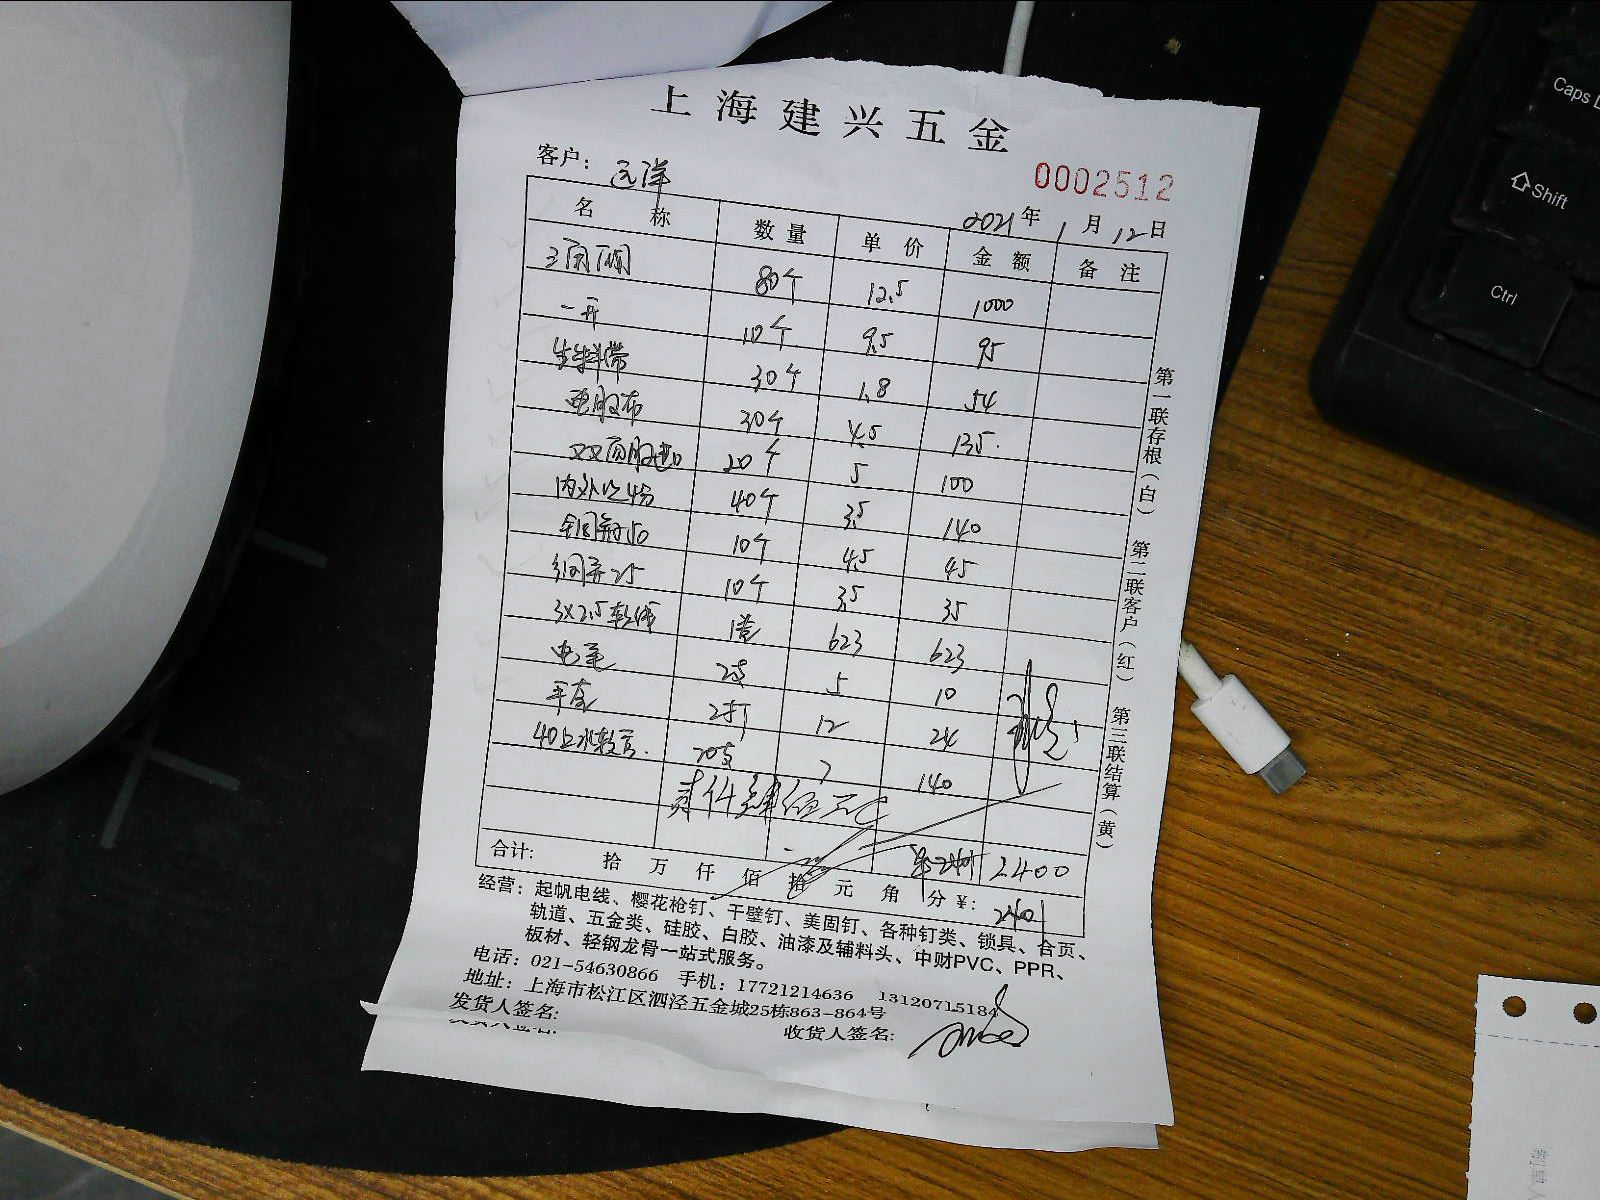 上海建兴五金
客户: 远洋
0002512
2021年1月12日
名称 数量 单价 金额 备注
80个 12.5 1000
一开 10个 9.5 95
生料带 30个 1.8 54
电胶布 30个 4.5 135.
双面胶 20个 5 100
内外丝4分 40个 3.5 140
10个 4.5 45
25 10个 3.5 35
3x2.5 1卷 623 623
电笔 2支 5 10
24
40上水 20支 7 140
贰仟肆佰元
2400
合计: 拾 万 仟 佰 拾 元 角 分 ¥: 2401
经营: 起帆电线、樱花枪钉、干壁钉、美固钉、各种钉类、锁具、合页、
轨道、五金类、硅胶、白胶、油漆及辅料头、中财PVC、PPR、
板材、轻钢龙骨一站式服务。
电话: 021-54630866 手机: 17721214636 13120715184
地址: 上海市松江区泗泾五金城25栋863-864号
发货人签名: 收货人签名:
第一联存根(白) 第二联客户(红) 第三联结算(黄)
Caps
Shift
Ctrl